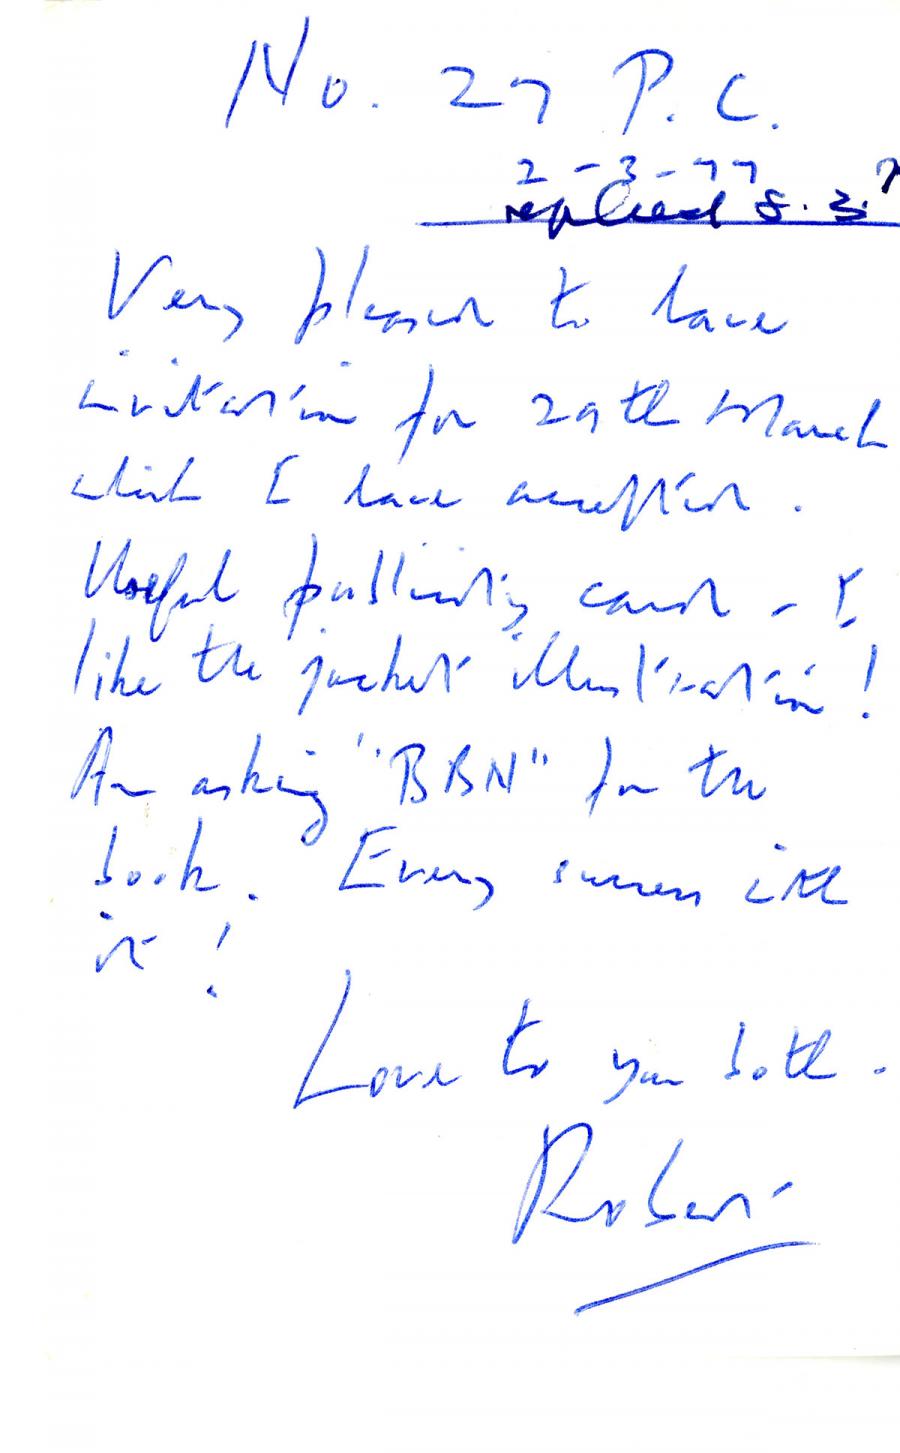 No. 27 P.C.
2-3-77
replied 8.3.
Very pleased to have
invitation for 29th March
which I have accepted.
Useful publicity card - I
like the jacket illustration!
Am asking "BBN" for the
book. Every success with
it!
Love to you both.
Robert